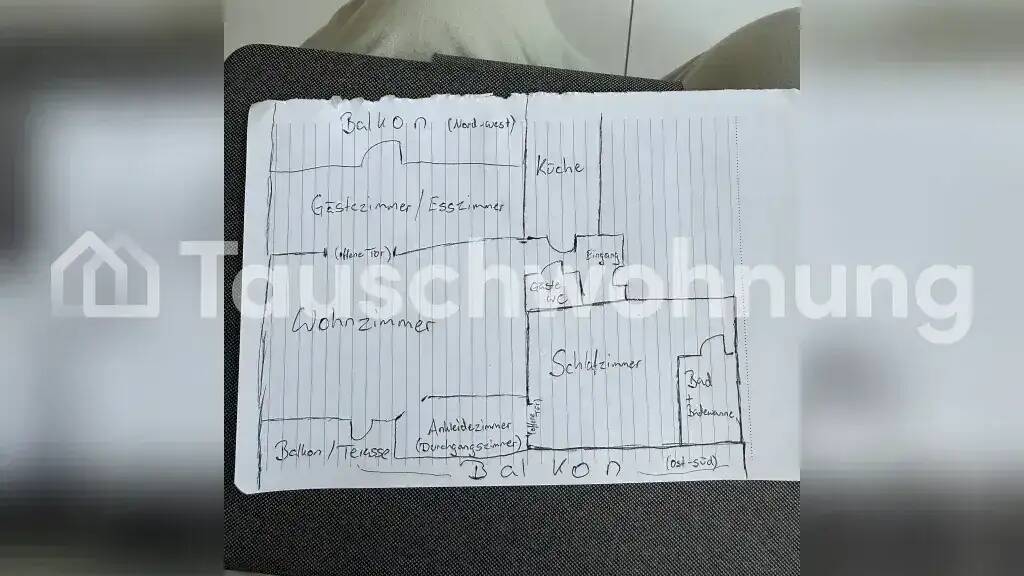 Balkon (Nord-west)
Küche
Gästezimmer / Esszimmer
(offene Tür)
Eingang
Gäste
WC
Tauschwohnung
Wohnzimmer
Schlafzimmer
Bad
+
Badewanne
Ankleidezimmer
(Durchgangszimmer)
(offene Tür)
Balkon / Terasse
Balkon (ost-süd)